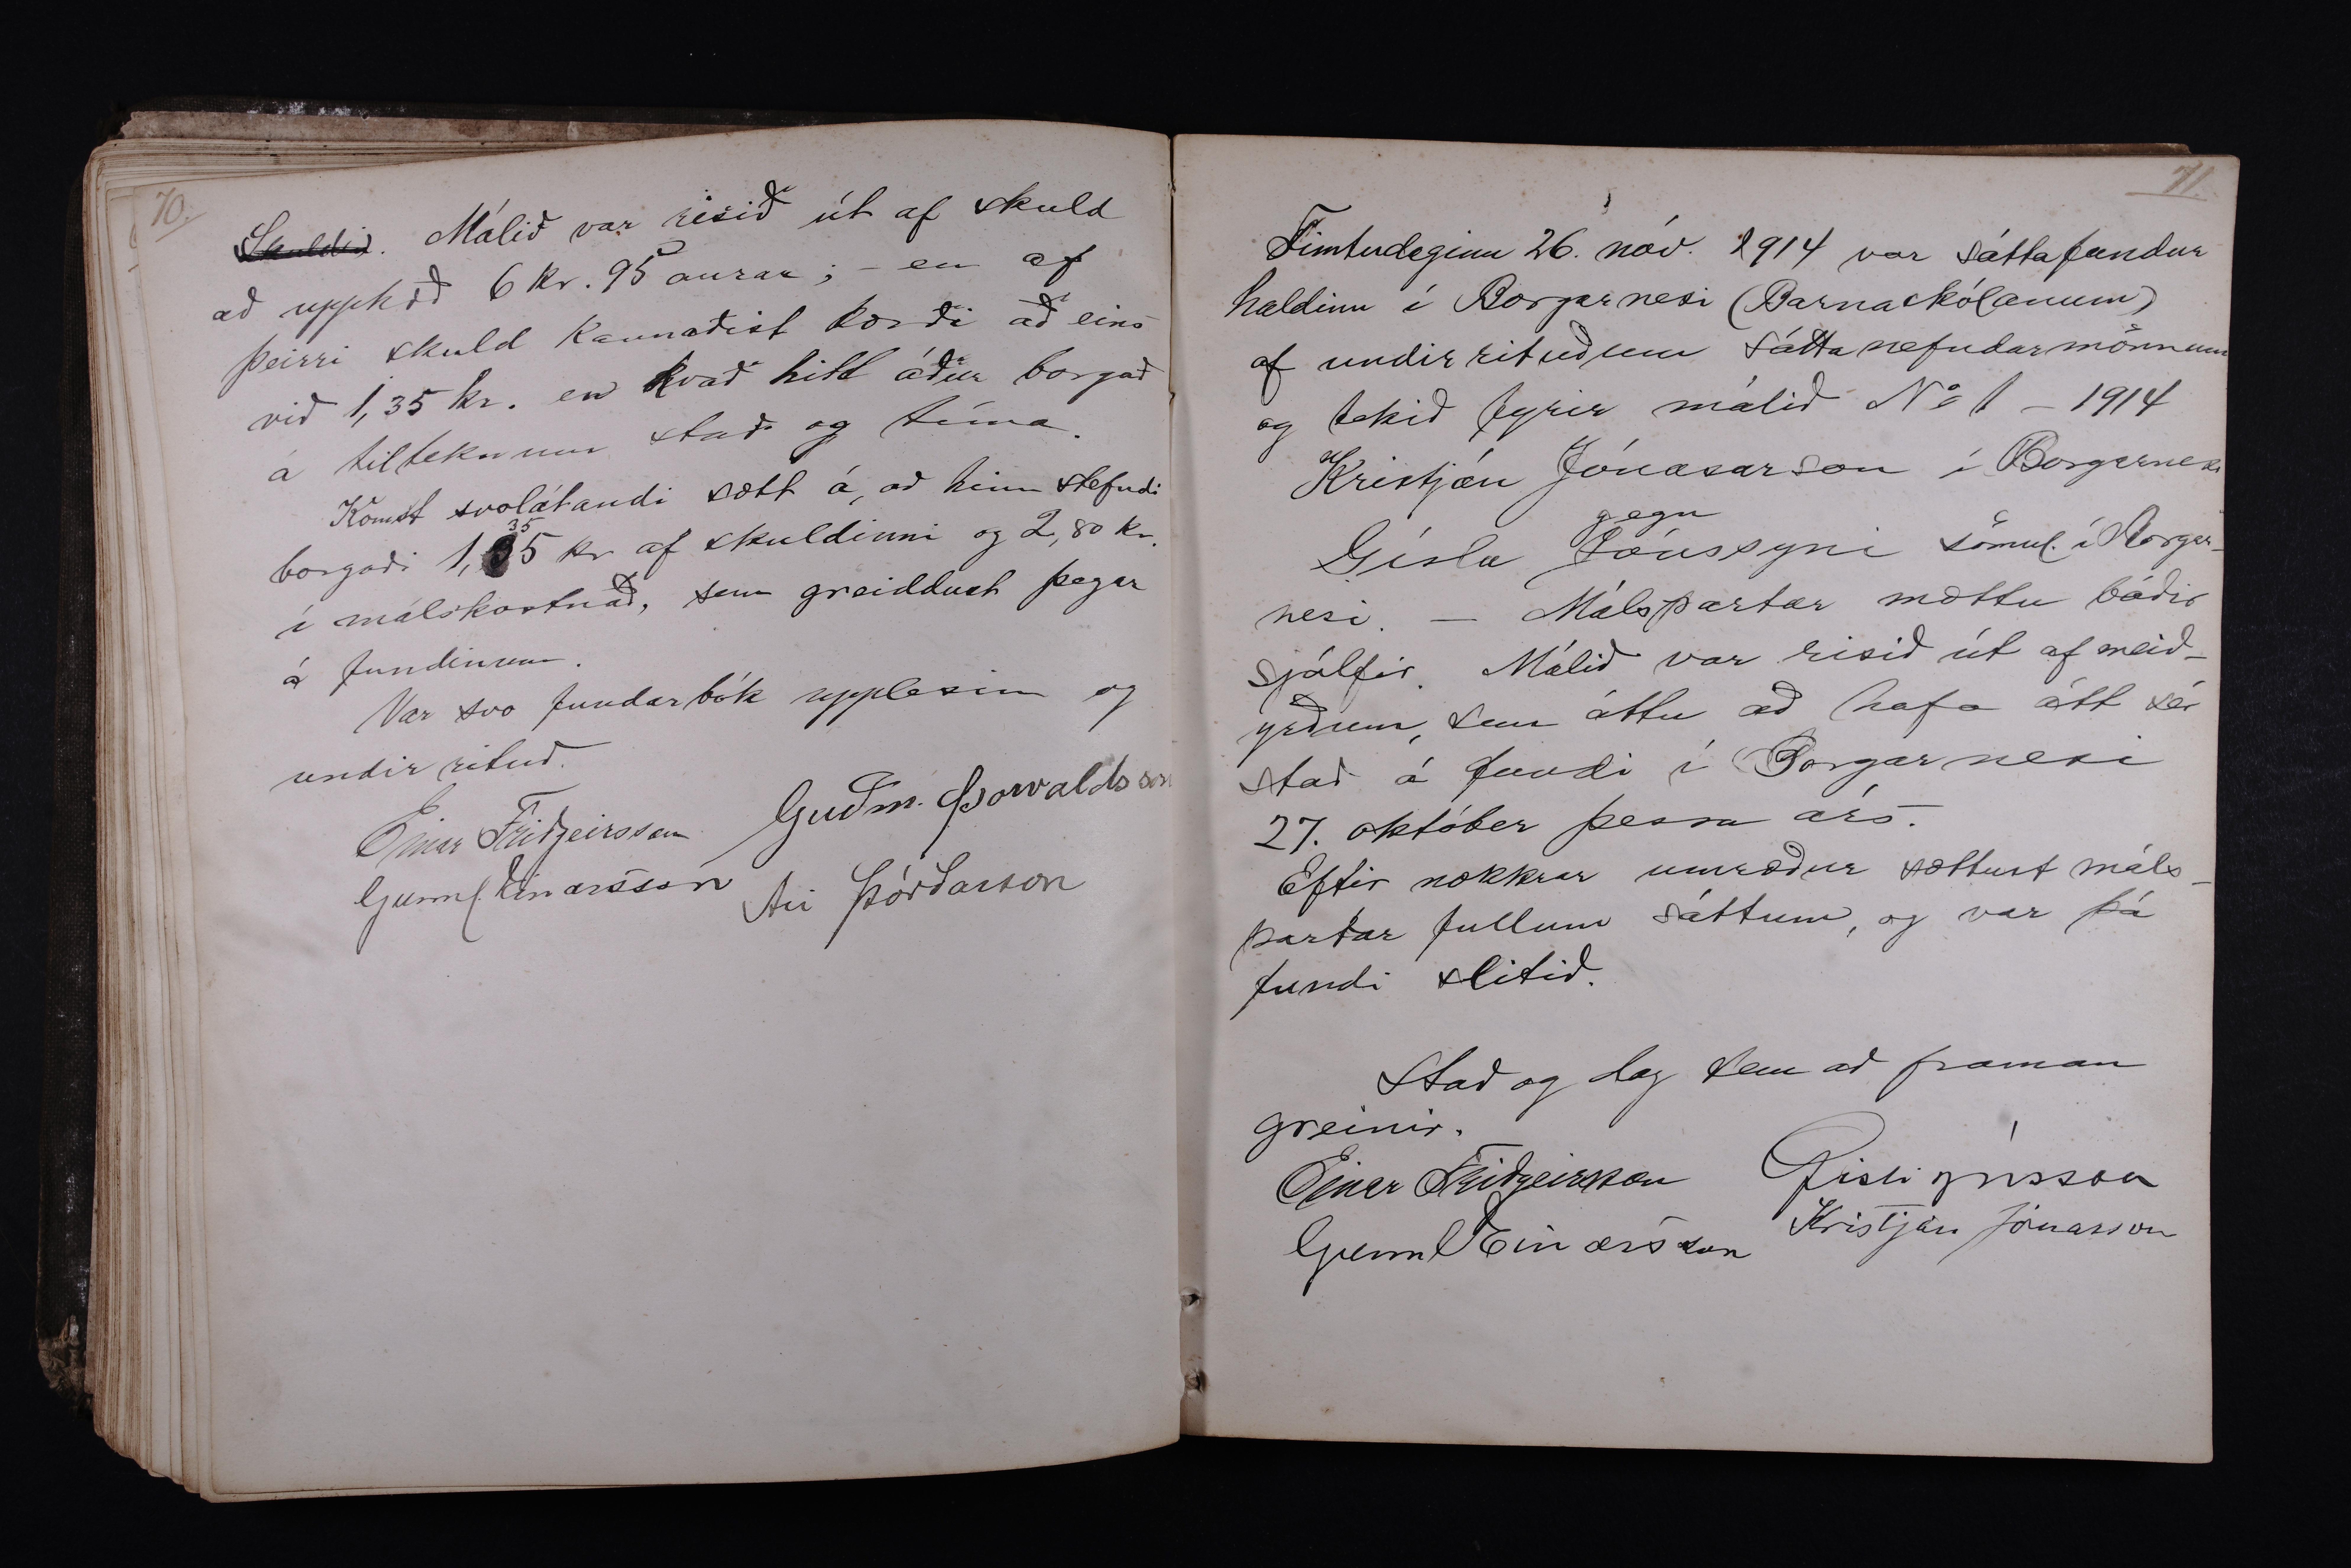 70.
Skuldin. Málið var risið út af skuld
að upphæð 6 kr. 95 aurar; - en af
þeirri skuld kannaðist kærði að eins
við 1,35 kr. en kvað hitt áður borgað
á tilteknum stað og tíma.
Komst svolátandi sætt á, að hinn stefndi
35
borgaði 1,35 kr af skuldinni og 2,80 kr.
í málskostnað, sem greiddust þegar
á fundinum.
Var svo fundarbók upplesin og
undirrituð.
Einar Friðgeirsson Guðm. Þorvaldsson
Gunnl. Einarsson Ari Þórðarson
71.
Fimtudaginn 26. nóv. 1914 var sáttafundur
haldinn í Borgarnesi (Barnaskólanum)
af undirrituðum sáttanefndarmönnum
og tekið fyrir málið No 1 - 1914
Kristján Jónasarson í Borgarnesi
gegn
Gísla Jónssyni sömul. í Borgar-
nesi. — Málspartar mættu báðir
sjálfir. Málið var risið út af meið-
yrðum, sem áttu að hafa átt sér
stað á fundi í Borgarnesi
27. október þessa árs.
Eftir nokkrar umræður sættust máls-
partar fullum sáttum, og var þá
fundi slitið.
Stað og dag sem að framan
greinir.
Einar Friðgeirsson Gísli Jónsson
Gunnl Einarsson Kristján Jónasson